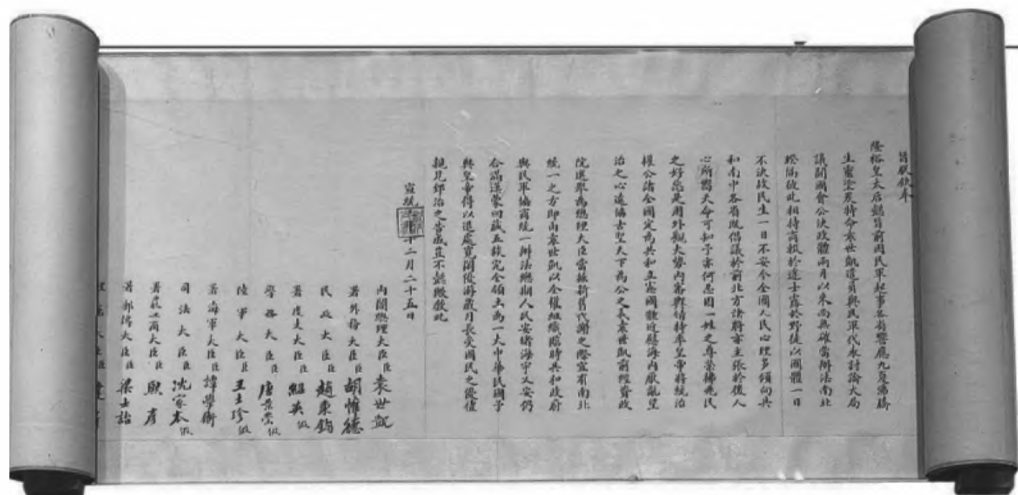 旨朕欽奉
隆裕皇太后懿旨前因民軍起事各省響應九夏沸騰
生靈塗炭特命袁世凱遣員與民軍代表討論大局
議開國會公決政體兩月以來尚無確當辦法南北
暌隔彼此相持商輟於途士露於野徒以國體一日
不決故民生一日不安今全國人民心理多傾向共
和南中各省既倡議於前北方諸將亦主張於後人
心所嚮天命可知予亦何忍因一姓之尊榮拂兆民
之好惡是用外觀大勢內審輿情特率皇帝將統治
權公諸全國定為共和立憲國體近慰海內厭亂望
治之心遠協古聖天下為公之義袁世凱前經資政
院選舉為總理大臣當茲新舊代謝之際宜有南北
統一之方即由袁世凱以全權組織臨時共和政府
與民軍協商統一辦法總期人民安堵海宇乂安仍
合滿漢蒙回藏五族完全領土為一大中華民國予
與皇帝得以退處寬閒優游歲月長受國民之優禮
親見郅治之告成豈不懿歟欽此
宣統三年十二月二十五日
內閣總理大臣臣袁世凱
署外務大臣臣胡惟德
民政大臣臣趙秉鈞
署度支大臣臣紹英假
學務大臣臣唐景崇假
陸軍大臣臣王士珍假
署海軍大臣臣譚學衡
司法大臣臣沈家本假
署農工商大臣臣熙彥
署郵傳大臣臣梁士詒